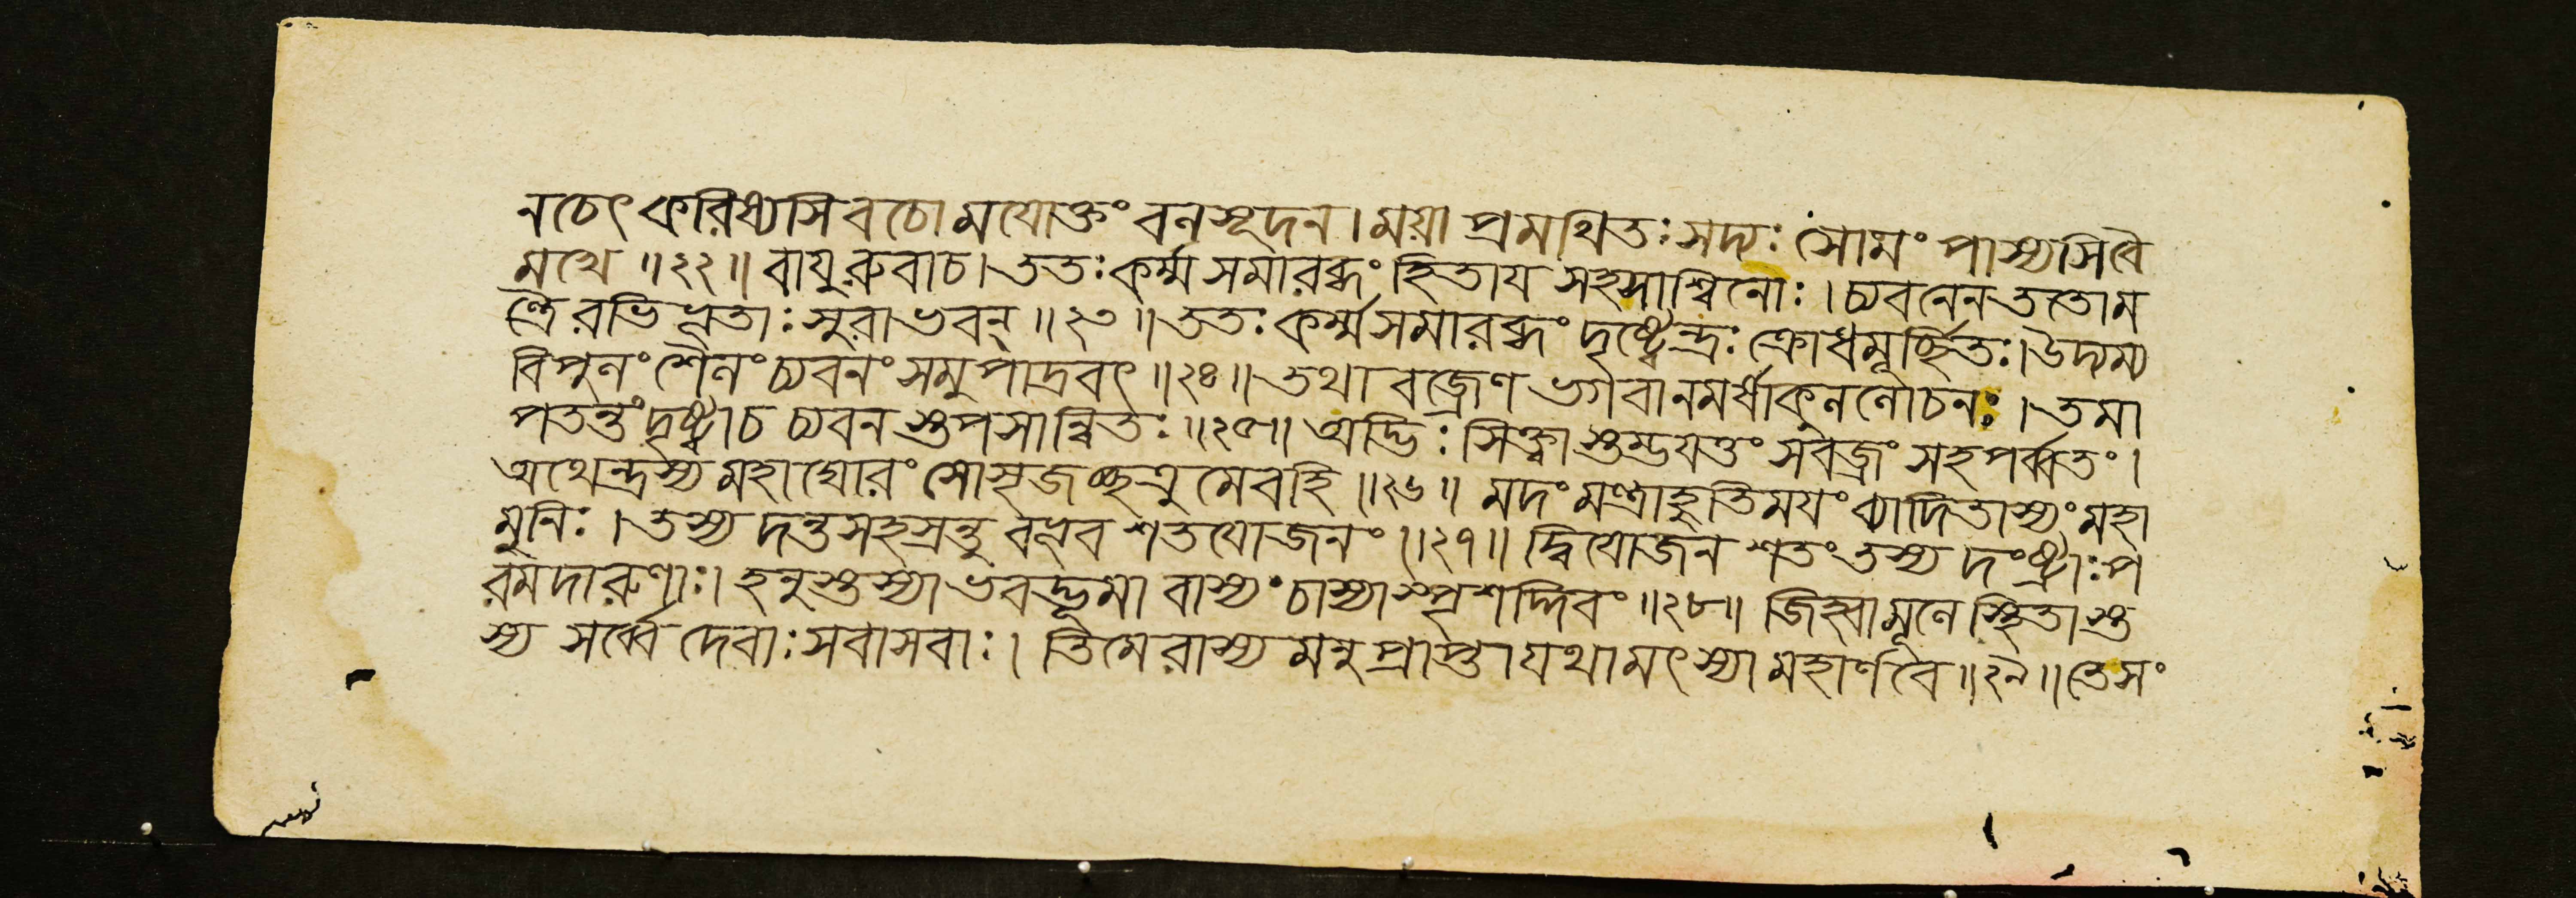 ন চেৎ করিষ্যসি বচো ময়োক্তং বলসূদন। ময়া প্রমথিতঃ সদ্যঃ সোমং পাস্যসি বৈ
মখে॥২২॥ বাযুরুবাচ। ততঃ কর্ম্ম সমারব্ধং হিতায সহসাশ্বিনোঃ। চ্যবনেন ততো ম
ন্ত্রৈরভিভূতাঃ সুরাভবন্॥২৩॥ ততঃ কর্ম্ম সমারব্ধং দৃষ্ট্বেন্দ্রঃ ক্রোধমূর্চ্ছিতঃ। উদ্যম্য
বিপুলং শৈলং চ্যবনং সমুপাদ্রবৎ॥২৪॥ তথা বজ্রেণ ভগবানমর্ষাকুললোচনঃ। তমা
পতন্তং দৃষ্ট্বা চ চ্যবনস্তপসান্বিতঃ॥২৫॥ অদ্ভিঃ সিক্ত্বাস্তম্ভযত্তং সবজ্রং সহপর্ব্বতং।
অথেন্দ্রস্য মহাঘোরং সোসৃজচ্ছত্রুমেবহি॥২৬॥ মদং মন্ত্রাহুতিময়ং ব্যাদিতাস্যং মহা
মুনিঃ। তস্য দন্তসহস্রন্তু বভূব শতযোজনং॥২৭॥ দ্বিযোজনশতং তস্য দংষ্ট্রাঃ প
রমদারুণাঃ। হনুস্তস্যাভবদ্ভূমা বাস্যং চাস্যাস্পৃশদ্দিবং॥২৮॥ জিহ্বামূলে স্থিতাস্ত
স্য সর্ব্বে দেবাঃ সবাসবাঃ। তিমেরাস্যমনুপ্রাপ্তা যথা মৎস্যা মহার্ণবে॥২৯॥ তে সং